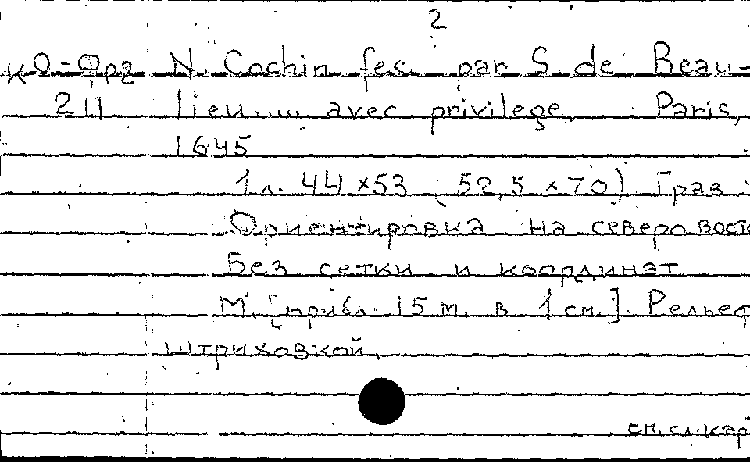 2
КО-Фрг N. Cochin fec. par S. de Beau-
211 lieu ... avec privilege. Paris,
1645
1 л. 44 x 53 (52,5 x 70) Грав
Ориентировка на северо вост
Без сетки и координат
М. [прибл. 15 м. в 1 см.]. Рельеф
штриховкой.
см. сл. кар